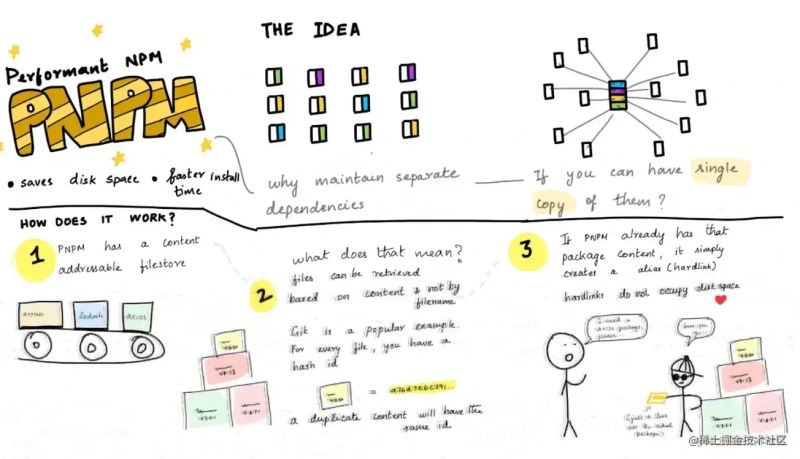 Performant NPM
PNPM
• saves disk space • faster install
time
THE IDEA
why maintain separate
dependencies
If you can have single
copy of them?
HOW DOES IT WORK?
1
PNPM has a content
addressable filestore
express
lodash
axios
2
what does that mean?
files can be retrieved
based on content & not by
filename
Git is a popular example.
For every file, you have a
hash id
=
a duplicate content will have the
same id
3
If PNPM already has that
package content, it simply
creates a alias (hardlink)
hardlinks do not occupy disk space
I need a
axios package,
please
here you
go..
@稀土掘金技术社区